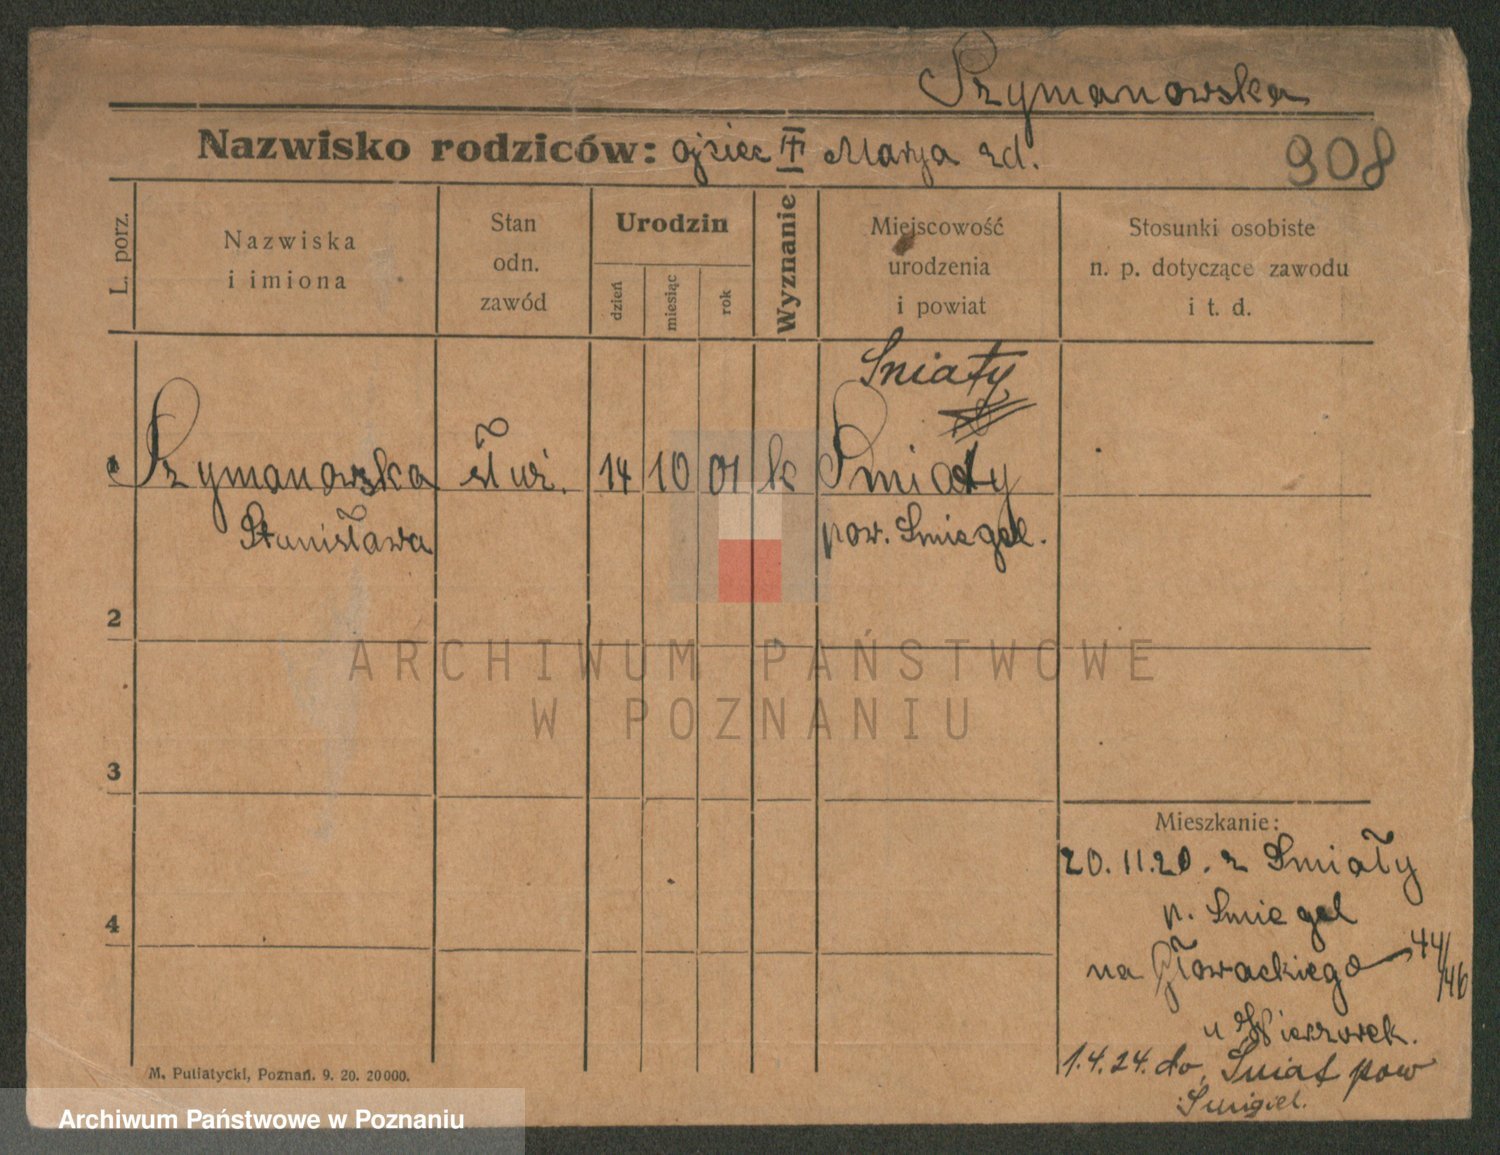 Szymanowska
Nazwisko rodziców: ojciec Marya zd.
908
L. porz.
Nazwiska
i imiona
Stan
odn.
zawód
Urodzin
dzień
miesiąc
rok
Wyznanie
Miejscowość
urodzenia
i powiat
Stosunki osobiste
n. p. dotyczące zawodu
i t. d.
Sniaty
Szymanowska służ. 14 10 01 k Smiaty
Stanisława pow. Smiegel.
2
3
4
Mieszkanie:
20.11.20. z Smiały
p. Smiegel
na Głowackiego 44/46
u Wieczorek.
1.4.24. do Sniat pow
Smigiel.
M. Putiatycki, Poznań. 9. 20. 20000.
ARCHIWUM PAŃSTWOWE
W POZNANIU
Archiwum Państwowe w Poznaniu